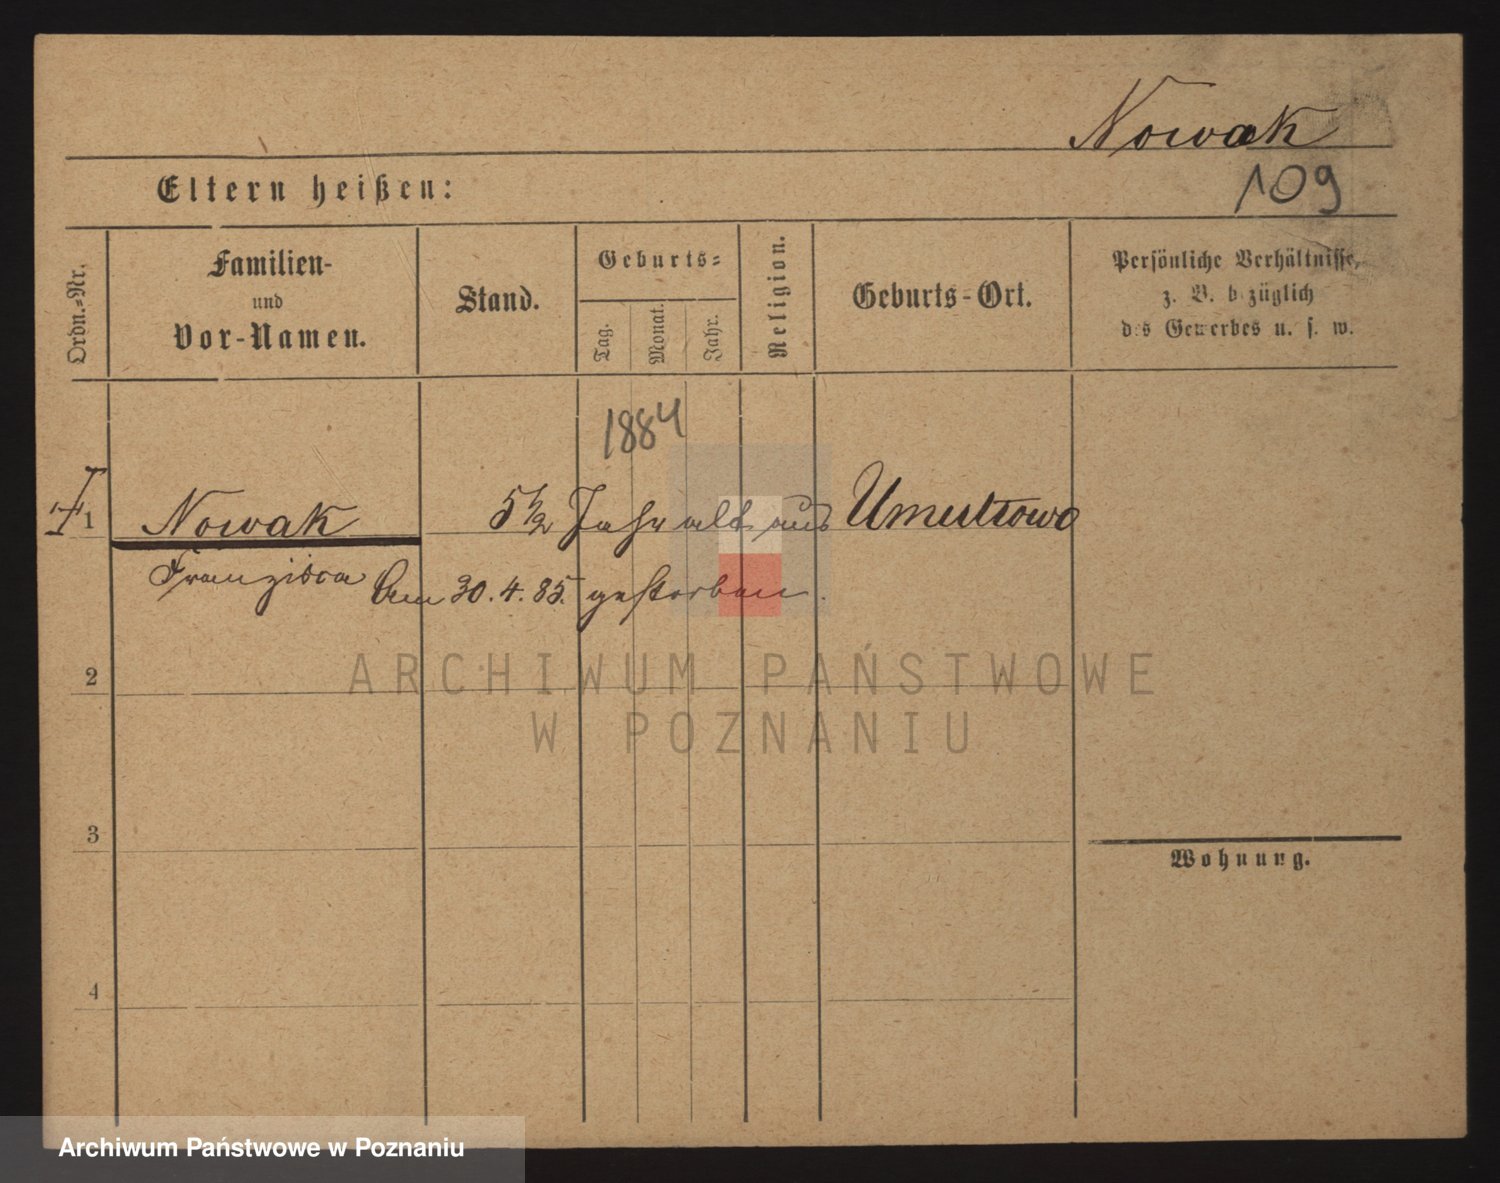 Nowak
Eltern heißen:
109
Ordn.-Nr.
Familien-
und
Vor-Namen.
Stand.
Geburts-
Tag.
Monat.
Jahr.
Religion.
Geburts-Ort.
Persönliche Verhältnisse,
z. B. bezüglich
des Gewerbes u. s. w.
1884
1 Nowak 5 1/2 Jahr alt aus Umultowo
Franzisca Am 30.4.85. gestorben.
ARCHIWUM PAŃSTWOWE
W POZNANIU
2
3
Wohnung.
4
Archiwum Państwowe w Poznaniu